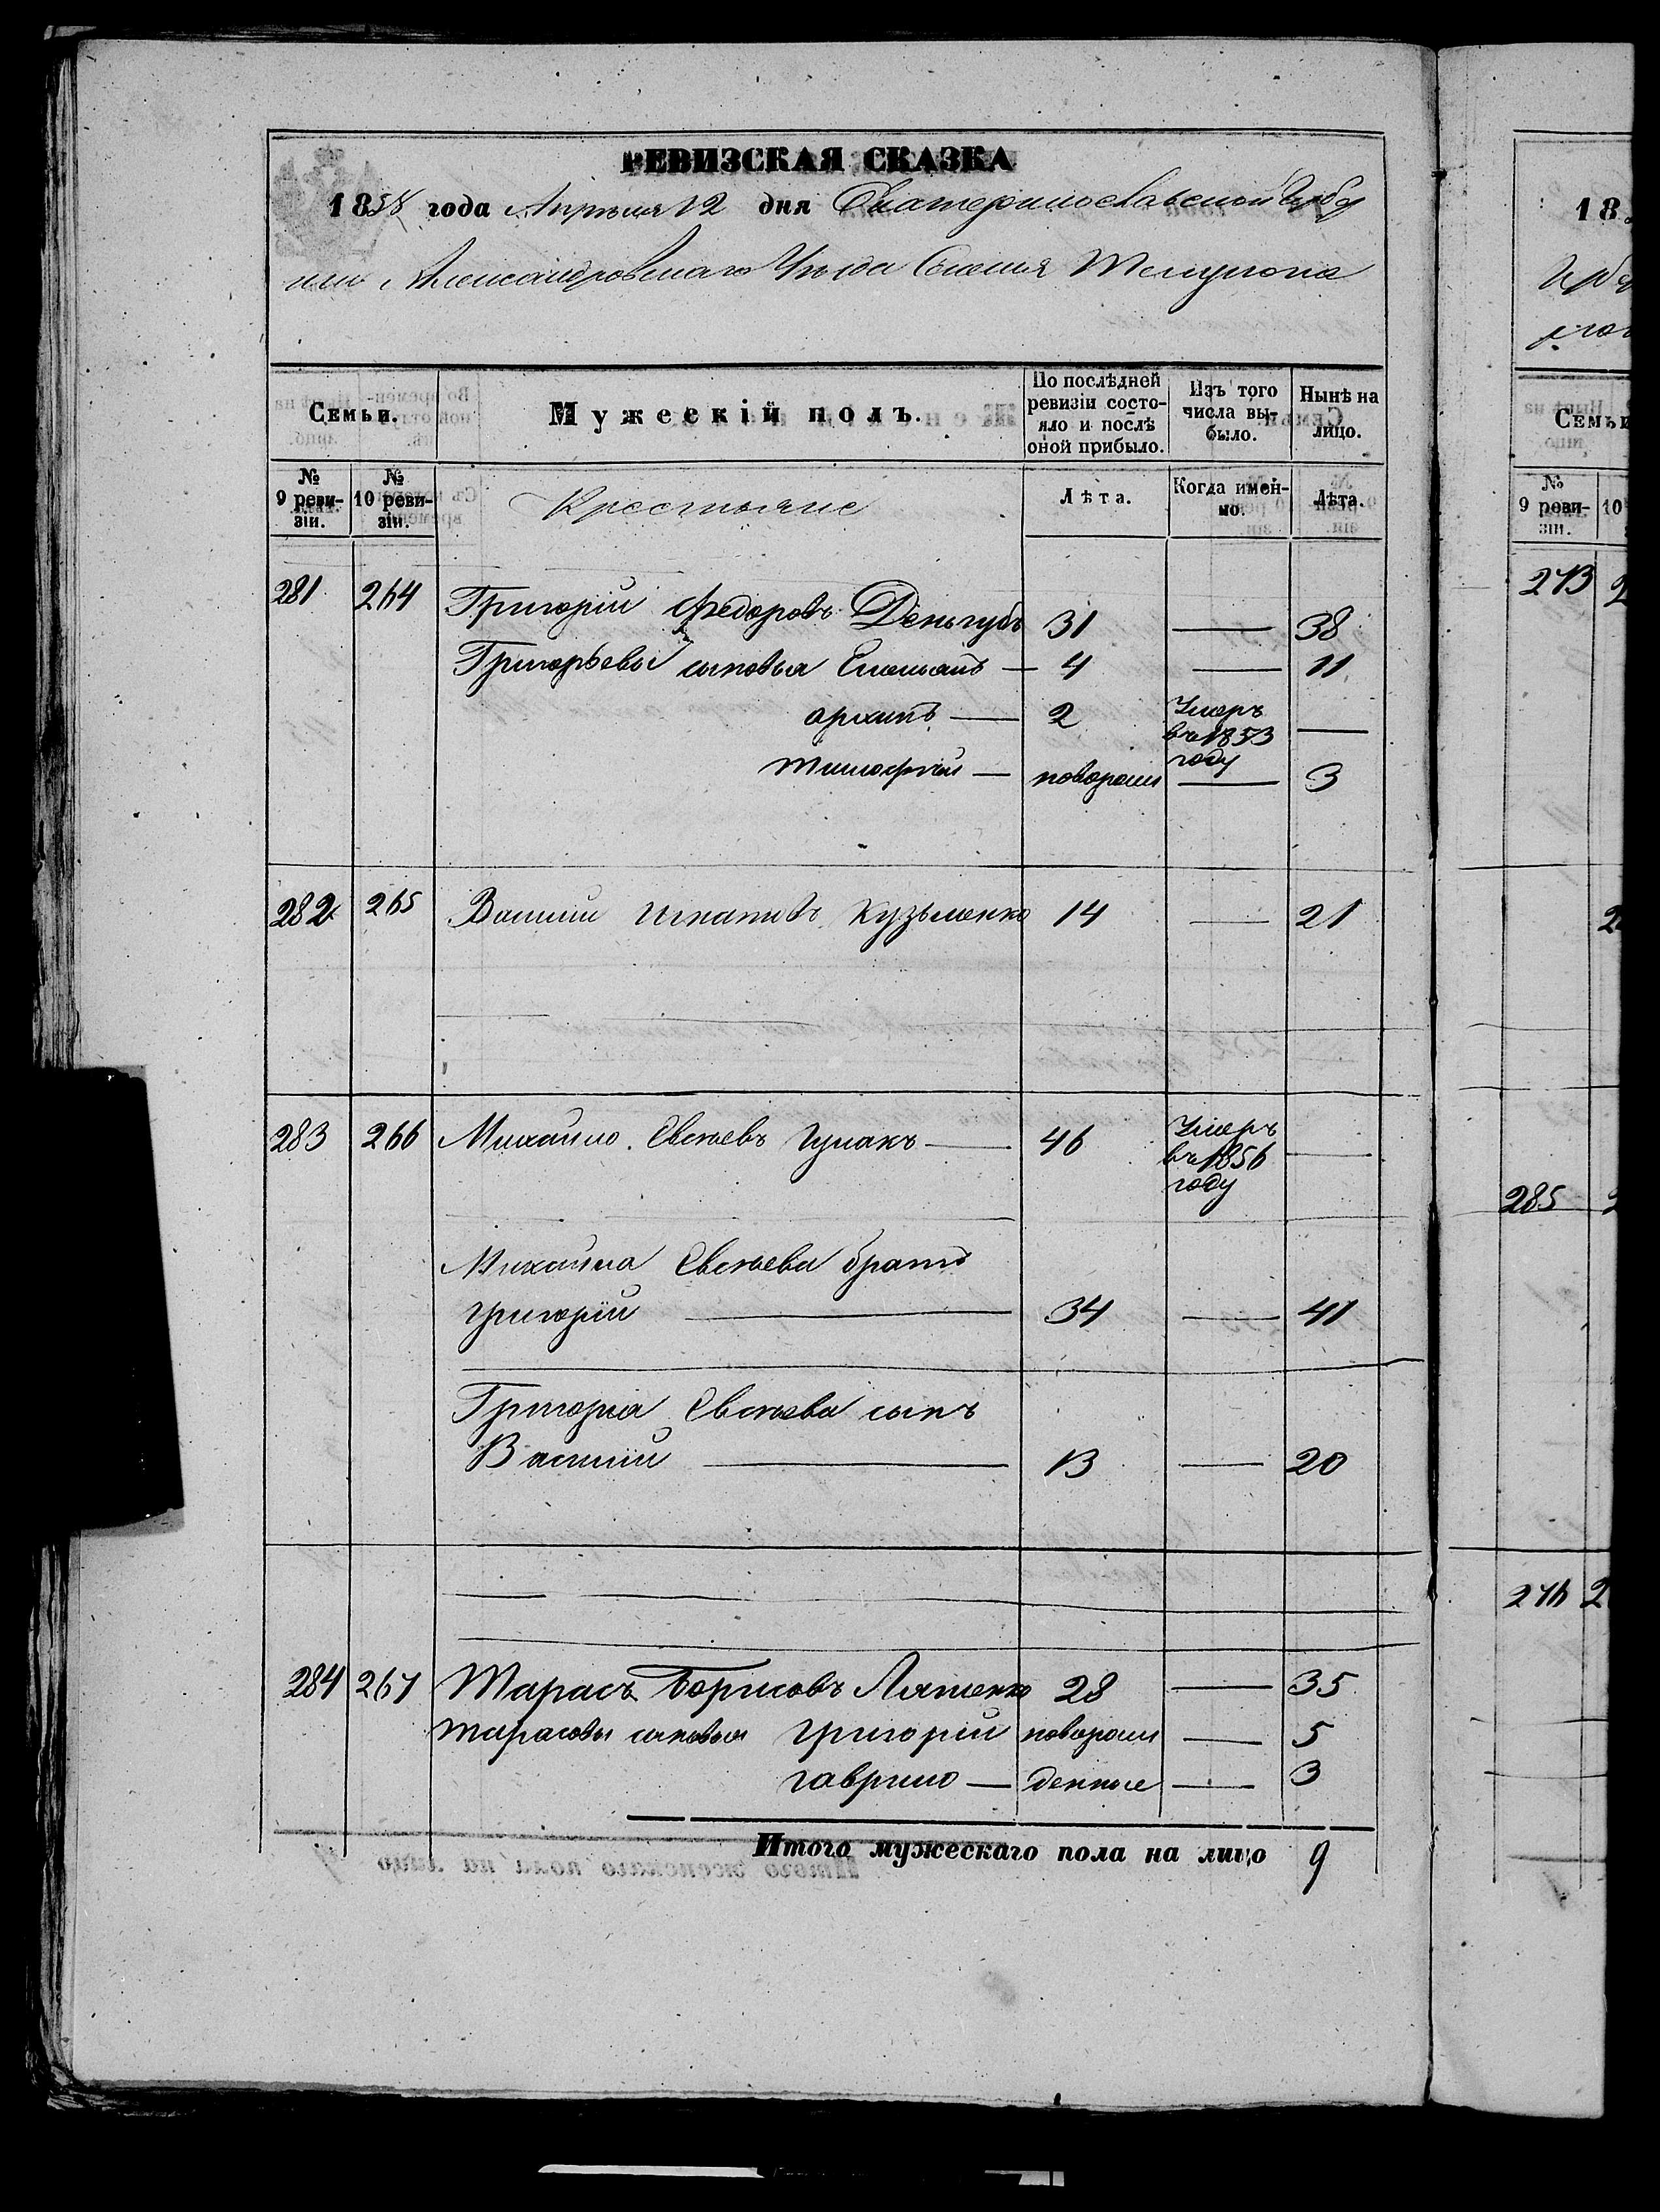 РЕВИЗСКАЯ СКАЗКА
1858 года Апреля 12 дня Екатеринославской Губер
нии Александровскаго Уезда Селения Жемунона
Семьи.
Мужескій полъ.
По послѣдней ревизіи состо-
яло и послѣ
оной прибыло.
Изъ того
числа вы-
было.
Нынѣ на
лицо.
№
9 реви-
зіи.
№
10 реви-
зіи.
Крестьяне
Лѣта.
Когда имен-
но.
Лѣта.
281 264 Григорій Федоровъ Деньгубъ 31 — 38
Григорьевы сыновья Емельянъ — 4 — 11
архипъ — 2 Умеръ въ 1853 году —
тимофѣй — новорожд — 3
282 265 Василій Игнатовъ Кузьменко 14 — 21
283 266 Михайло Евсѣевъ Гумакъ — 46 Умеръ въ 1856 году —
Михайла Евсѣева братъ
григорій — 34 — 41
Григорія Евсѣева сынъ
Василій — 13 — 20
284 267 Тарасъ Борисовъ Ляшенко 28 — 35
тарасовы сыновья григорій новорож — 5
гаврило — денные — 3
Итого мужескаго пола на лицо 9
18
Семьи
№
9 реви-
зіи.
10
273
285
276